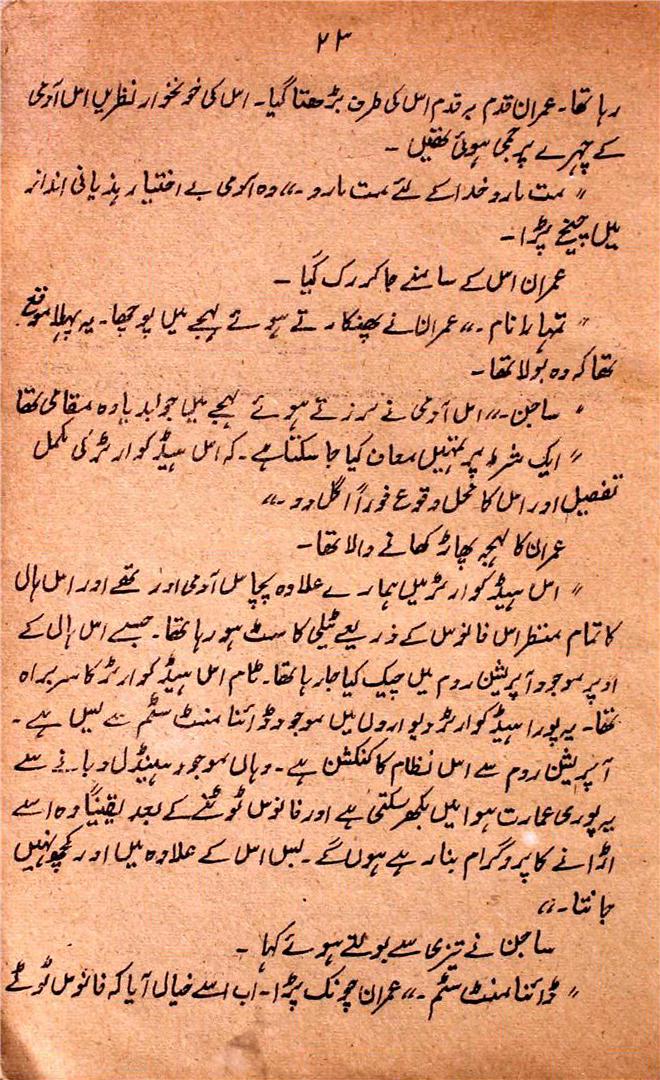 ۲۳
رہا تھا۔ عمران قدم بہ قدم اس کی طرف بڑھتا گیا۔ اس کی خونخوار نظریں اس آدمی
کے چہرے پر جمی ہوئی تھیں ۔
" مت مارو خدا کے لئے مت مارو ۔" وہ آدمی بے اختیار ہذیانی انداز
میں چیخ پڑا۔
عمران اس کے سامنے جا کر رک گیا ۔
" تمہارا نام ۔" عمران نے پھنکارتے ہوئے لہجے میں پوچھا۔ یہ پہلا موقع
تھا کہ وہ بولا تھا۔
" ساجن ۔" اس آدمی نے لرزتے ہوئے لہجے میں جواب دیا وہ مقامی تھا
" ایک شرط پر تمہیں معاف کیا جا سکتا ہے ۔ کہ اس ہیڈ کوارٹر کی مکمل
تفصیل اور اس کا محل وقوع فوراً اگل دو ۔"
عمران کا لہجہ پھاڑ کھانے والا تھا۔
" اس ہیڈ کوارٹر میں ہمارے علاوہ پچاس آدمی اور تھے اور اس ہال
کا تمام منظر اس فانوس کے ذریعے ٹیلی کاسٹ ہو رہا تھا۔ جسے اس ہال کے
اوپر موجود آپریشن روم میں چیک کیا جا رہا تھا۔ ٹام اس ہیڈ کوارٹر کا سربراہ
تھا۔ یہ پورا ہیڈ کوارٹر دیواروں میں موجود ڈائنا منٹ سسٹم سے لیس ہے ۔
آپریشن روم سے اس نظام کا کنکشن ہے ۔ وہاں موجود ہینڈل دبانے سے
یہ پوری عمارت ہوا میں بکھر سکتی ہے اور فانوس ٹوٹنے کے بعد یقیناً وہ اسے
اڑانے کا پروگرام بنا رہے ہوں گے ۔ بس اس کے علاوہ میں اور کچھ نہیں
جانتا ۔"
ساجن نے تیزی سے بولتے ہوئے کہا ۔
" ڈائنا منٹ سسٹم ۔" عمران چونک پڑا ۔ اب اسے خیال آیا کہ فانوس ٹوٹے